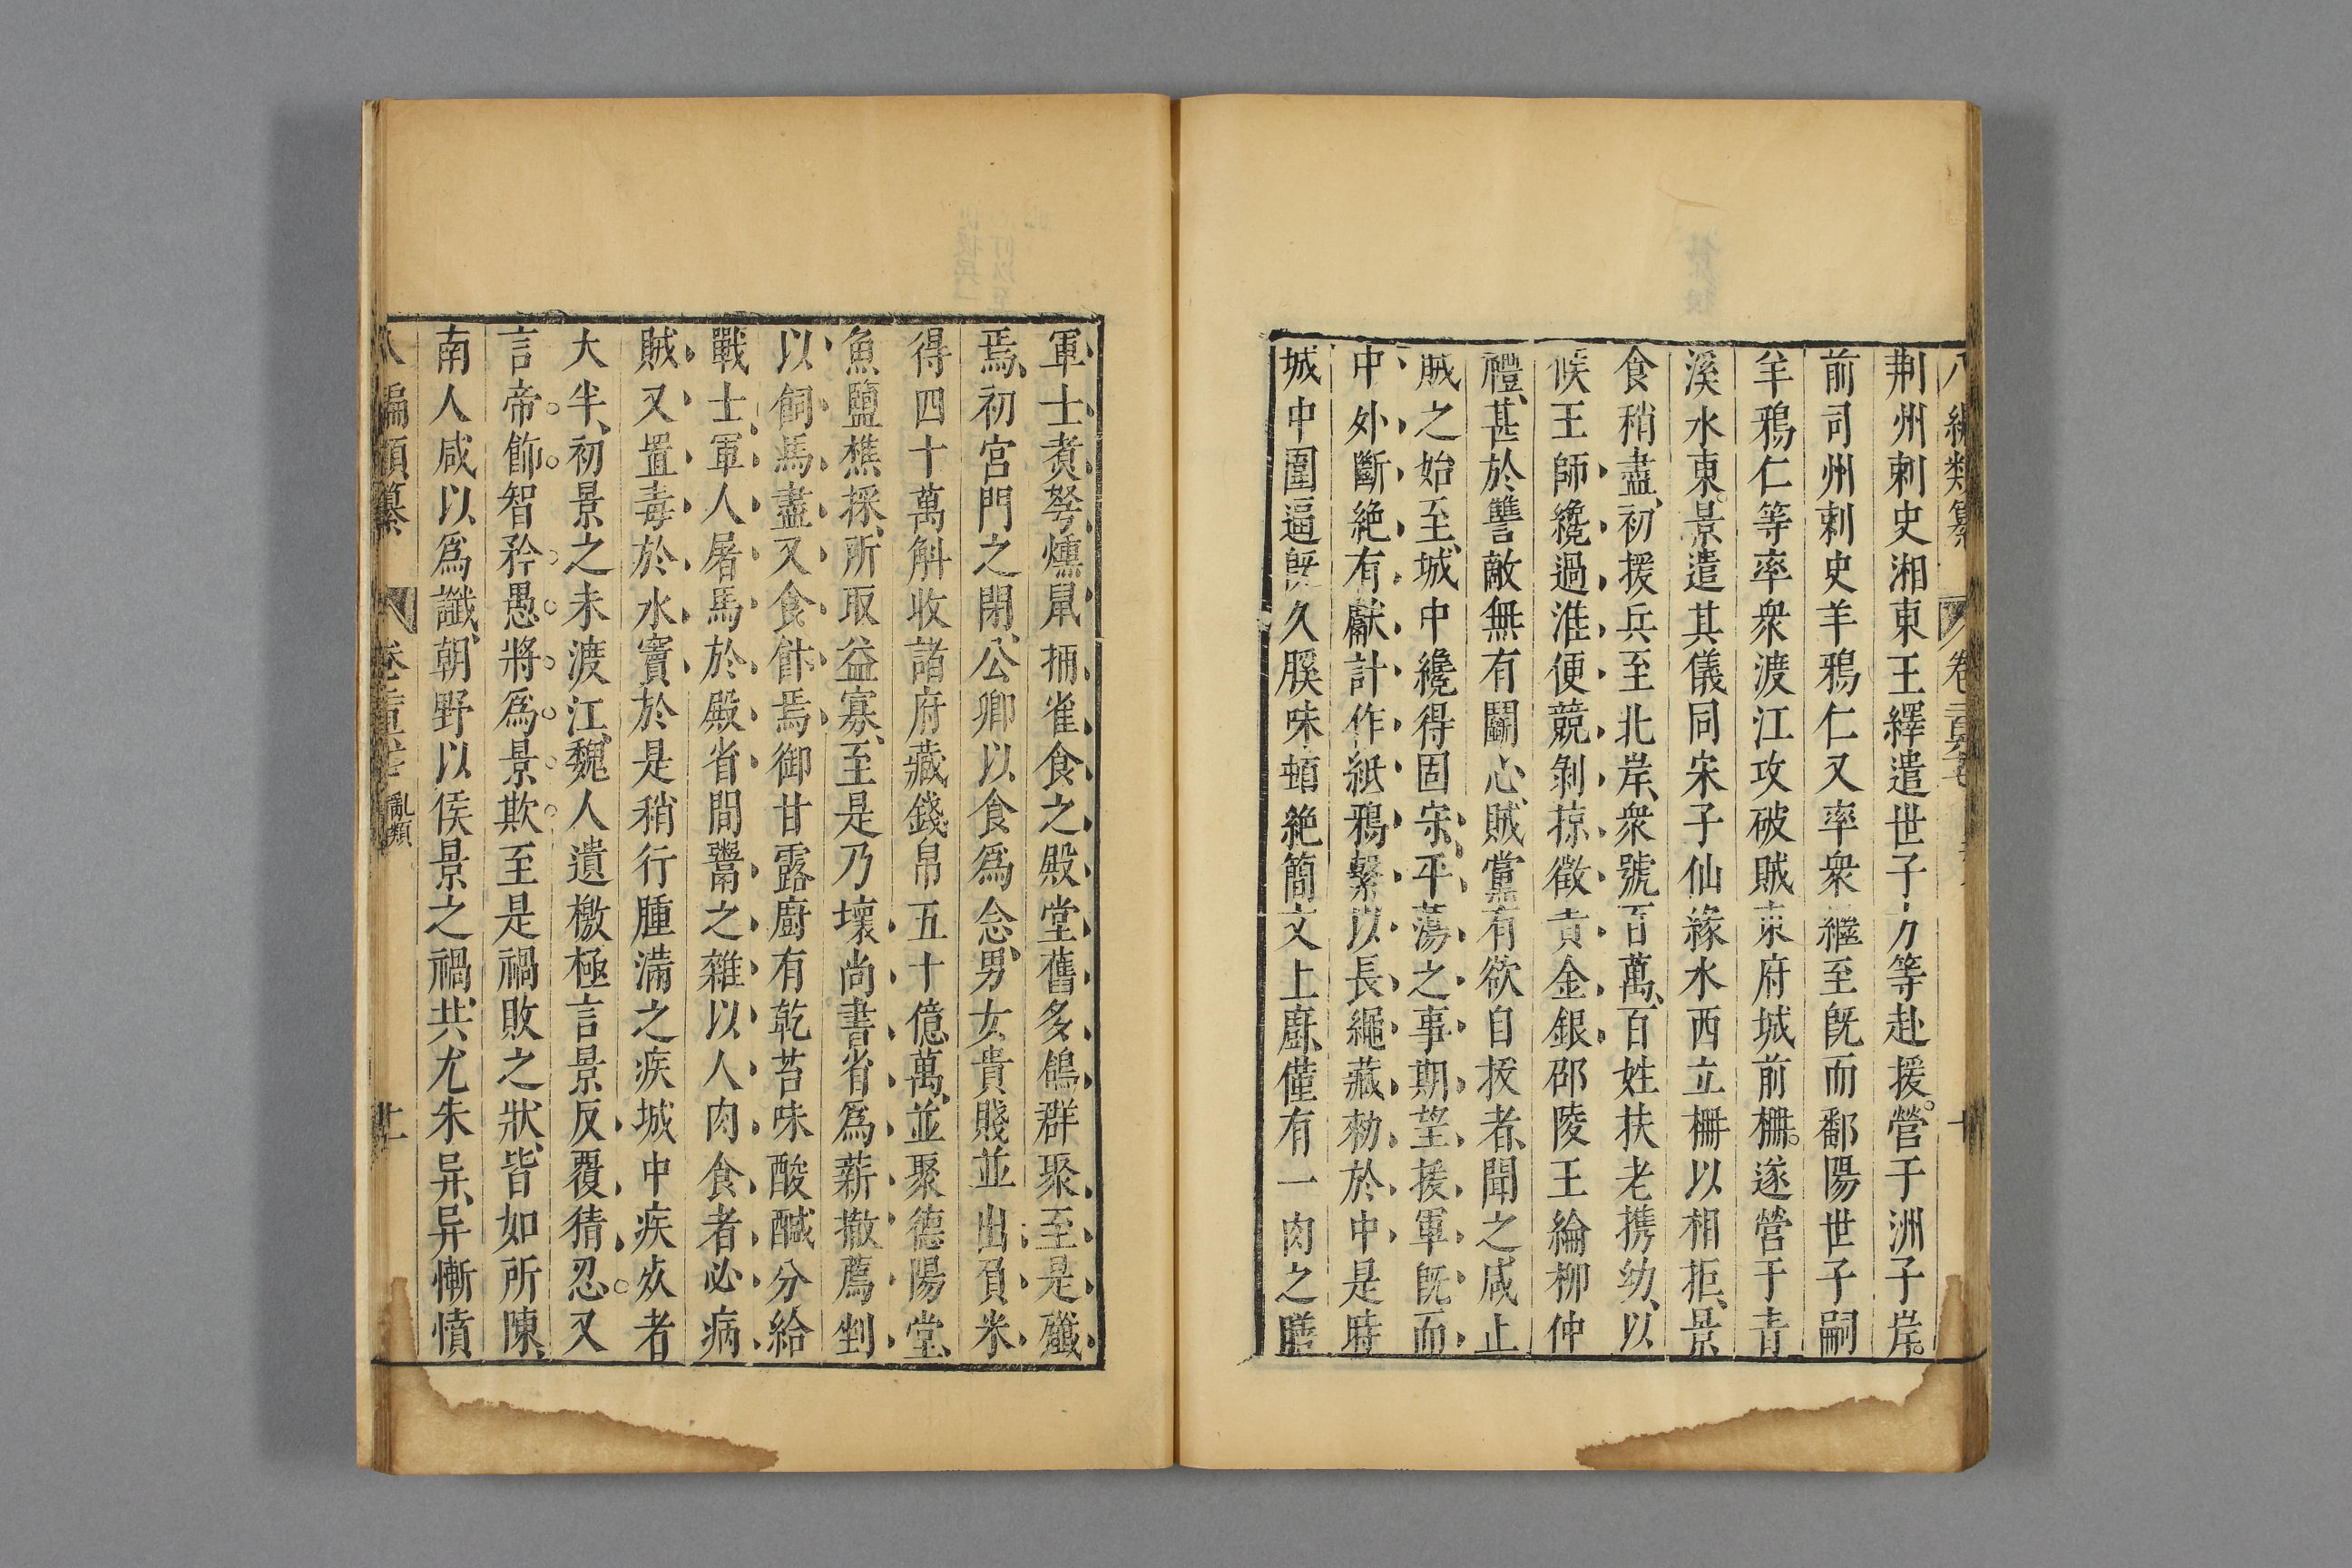 荆州刺史湘東王繹遣世子方等赴援營于洲子岸
前司州刺史羊鴉仁又率衆繼至旣而鄱陽世子嗣
羊鴉仁等率衆渡江攻破賊東府城前柵遂營于青
溪水東景遣其儀同宋子仙緣水西立柵以相拒景
食稍盡初援兵至北岸衆號百萬百姓扶老携幼以
候王師纔過淮便競剝掠徵責金銀邵陵王綸柳仲
禮甚於讐敵無有鬭心賊黨有欲自拔者聞之咸止
賊之始至城中纔得固守平蕩之事期望援軍旣而
中外斷絶有獻計作紙鴉繫以長繩藏勑於中是時
城中圍逼旣久膎味頓絶簡文上厨僅有一肉之膳
軍士煑弩燻鼠捕雀食之殿堂舊多鴿群聚至是殲
焉初宮門之閉公卿以食爲念男女貴賤並出負米
得四十萬斛收諸府藏錢帛五十億萬並聚德陽堂
魚鹽樵採所取益寡至是乃壞尚書省爲薪撤薦剉
以飼馬盡又食飰焉御甘露厨有乾苔味酸醎分給
戰士軍人屠馬於殿省間鬻之雜以人肉食者必病
賊又置毒於水竇於是稍行腫滿之疾城中疾死者
大半初景之未渡江魏人遺檄極言景反覆猜忍又
言帝飾智矜愚將爲景欺至是禍敗之狀皆如所陳
南人咸以爲讖朝野以侯景之禍共尤朱异异慚憤
八編類纂 卷 亂類